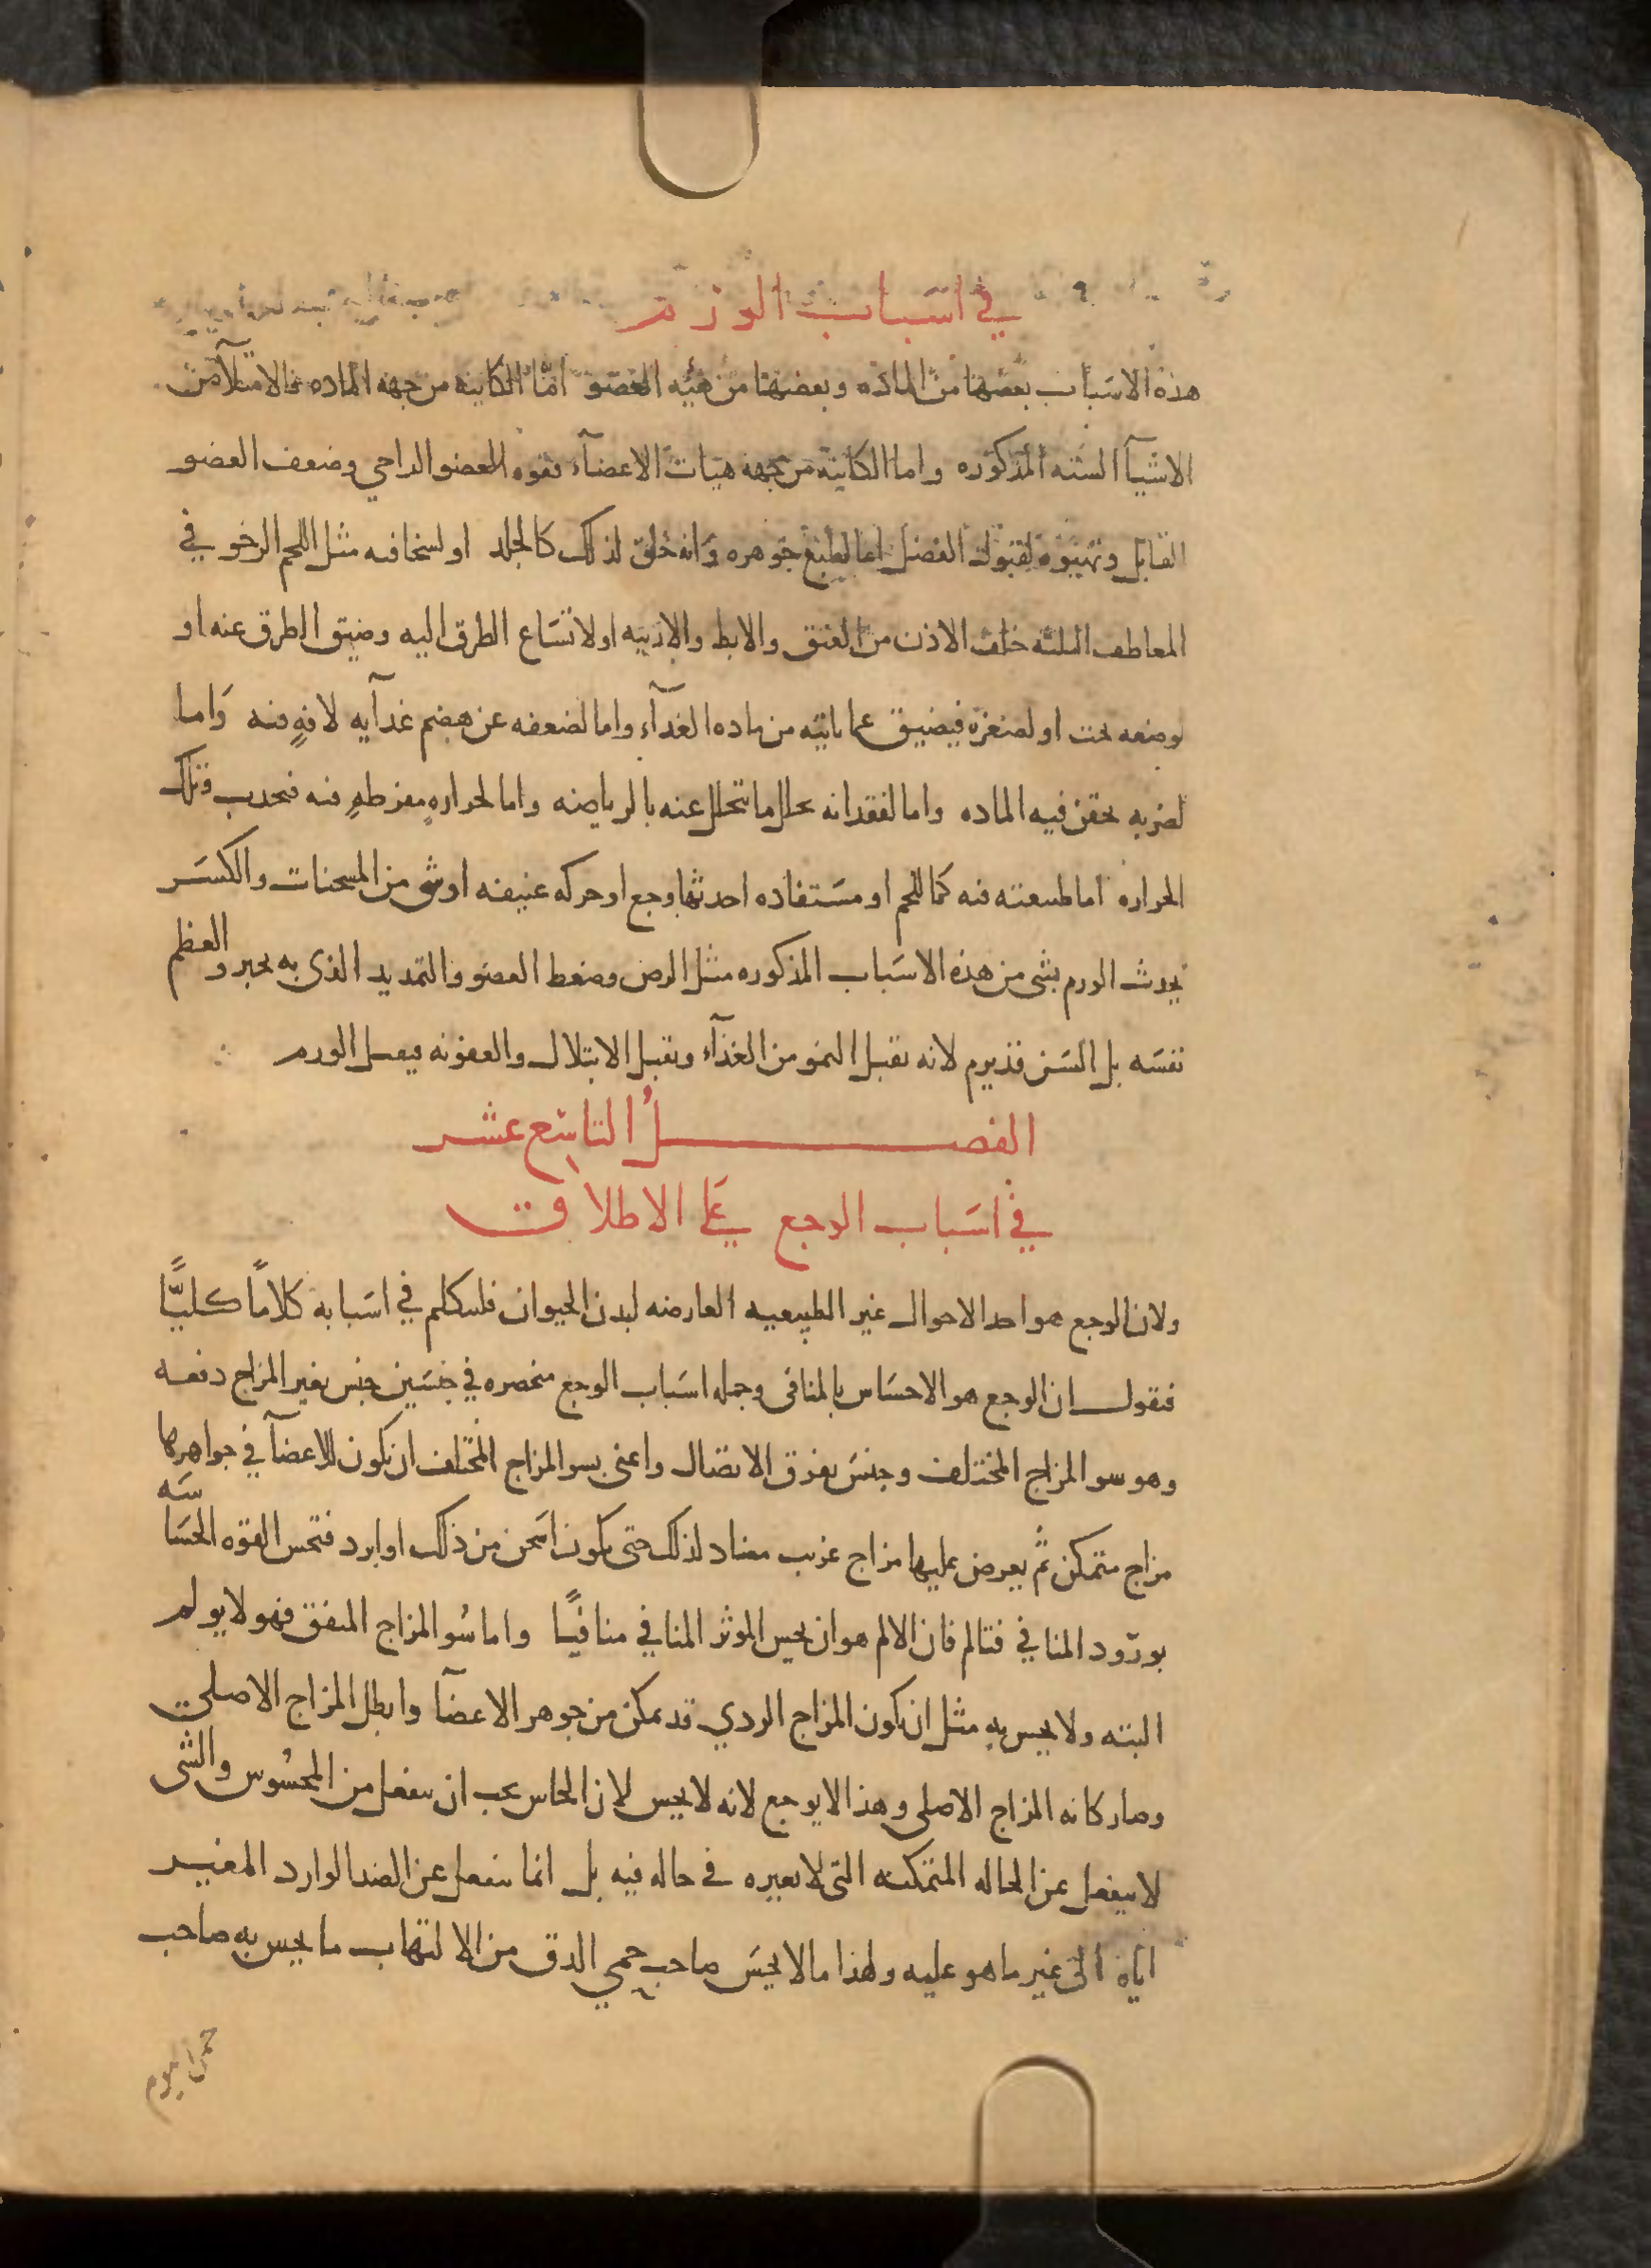 في اسباب الورم
هذه الاسباب بعضها من الماده وبعضها من هيئه العضو امّا الكاينه من جهه الماده فالامتلآ من
الاشيآ السته المذكوره واما الكاينة من جهه هيات الاعضآء فقوه العضو الدافع وضعف العضو
القابل وتهيوه لقبول الفضل اما لطبع جوهره وانه خلق لذلك كالجلد او لسخافه مثل اللحم الرخو في
المعاطف الثلثه خلف الاذن من العنق والابط والاربيه او لاتساع الطرق اليه وضيق الطرق عنه او
لوضعه تحت او لصغره فيضيق عما ياتيه من ماده الغدآء واما لضعفه عن هضم غدآيه لافةٍ فيه وَاما
لضربه تحقن فيه الماده واما لفقدانه تحلل ما يتحلل عنه بالرياضه واما لحرارهٍ مفرطهٍ فيه فتجذب وتلك
الحراره اما طبيعته فيه كما للحم او مستفاده احدثها وجع او حركه عنيفه او شي من المسخنات والكسر
يحدث الورم بشي من هذه الاسباب المذكوره مثل الرض وضغط العضو والتمديد الذي به يجبر والعظم
نفسه بل السن قد يرم لانه يقبل النمو من الغذآء ويقبل الابتلال والعفونه فيقبل الورم
الفصلُ التاسع عشر
في اسباب الوجع على الاطلاق
ولان الوجع هو احد الاحوال غير الطبيعيه العارضه لبدن الحيوان فلنتكلم في اسبابه كلامًا كليًّا
فنقول ان الوجع هو الاحساس بالمنافي وجمله اسباب الوجع منحصره في جنسين جنس يغير المزاج دفعه
وهو سو المزاج المختلف وجنس يفرق الاتصال واعني بسو المزاج المختلف ان يكون للاعضآ في جواهرها
مزاج متمكن ثم يعرض عليها مزاج غريب مضاد لذلك حتى يكون اسخن من ذلك او ابرد فتحس القوه الحساسه
بورود المنافي فتالم فان الالم هو ان يحس الموثر المنافي منافيًا واما سُو المزاج المتفق فهو لا يولم
البته ولا يحس به مثل ان يكون المزاج الردي قد تمكن من جوهر الاعضآ وابطل المزاج الاصلي
وصار كانه المزاج الاصلي وهذا لا يوجع لانه لا يحس لان الحاس يجب ان ينفعل من المحسُوس والشي
لا ينفعل عن الحاله المتمكنه التي لا تغيره في حاله فيه بل انما ينفعل عن الضد الوارد المغير
اياه الى غير ما هو عليه ولهذا ما لا يحس صاحب حمي الدق من الالتهاب ما يحس به صاحب
حمى اليوم